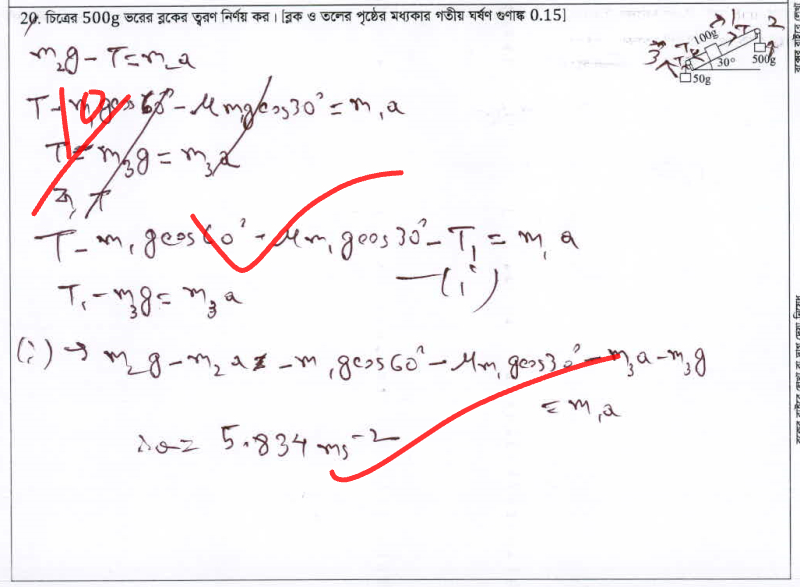 20. চিত্রের 500g ভরের ব্লকের ত্বরণ নির্ণয় কর। [ব্লক ও তলের পৃষ্ঠের মধ্যকার গতীয় ঘর্ষণ গুণাঙ্ক 0.15]
1 2 3 T T₁ 100g 30° 500g 50g
m₂g - T = m₂a
T - m₁gcos60° - μm₁gcos30° = m₁a
T - m₃g = m₃a
10
T - m₁gcos60° - μm₁gcos30° - T₁ = m₁a
—(i)
T₁ - m₃g = m₃a
(i) → m₂g - m₂a - m₁gcos60° - μm₁gcos30° - m₃a - m₃g
= m₁a
∴ a = 5.834 ms⁻²